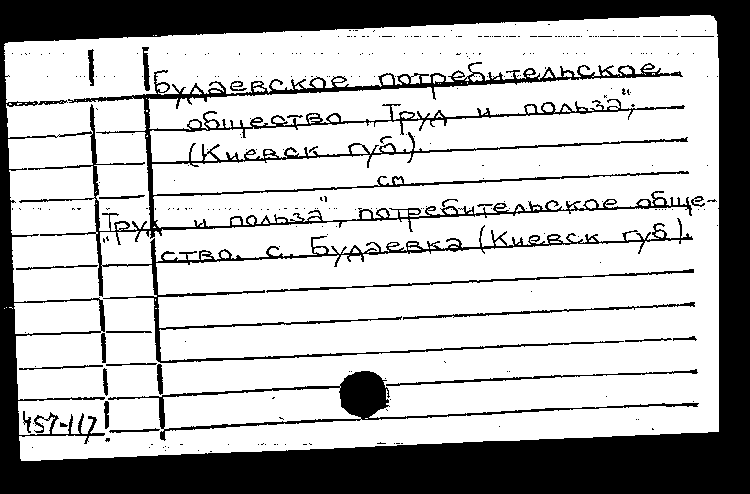 Будаевское потребительское
общество „Труд и польза",
(Киевск губ.).
см
„Труд и польза", потребительское обще-
ство. с. Будаевка (Киевск губ).
457-117